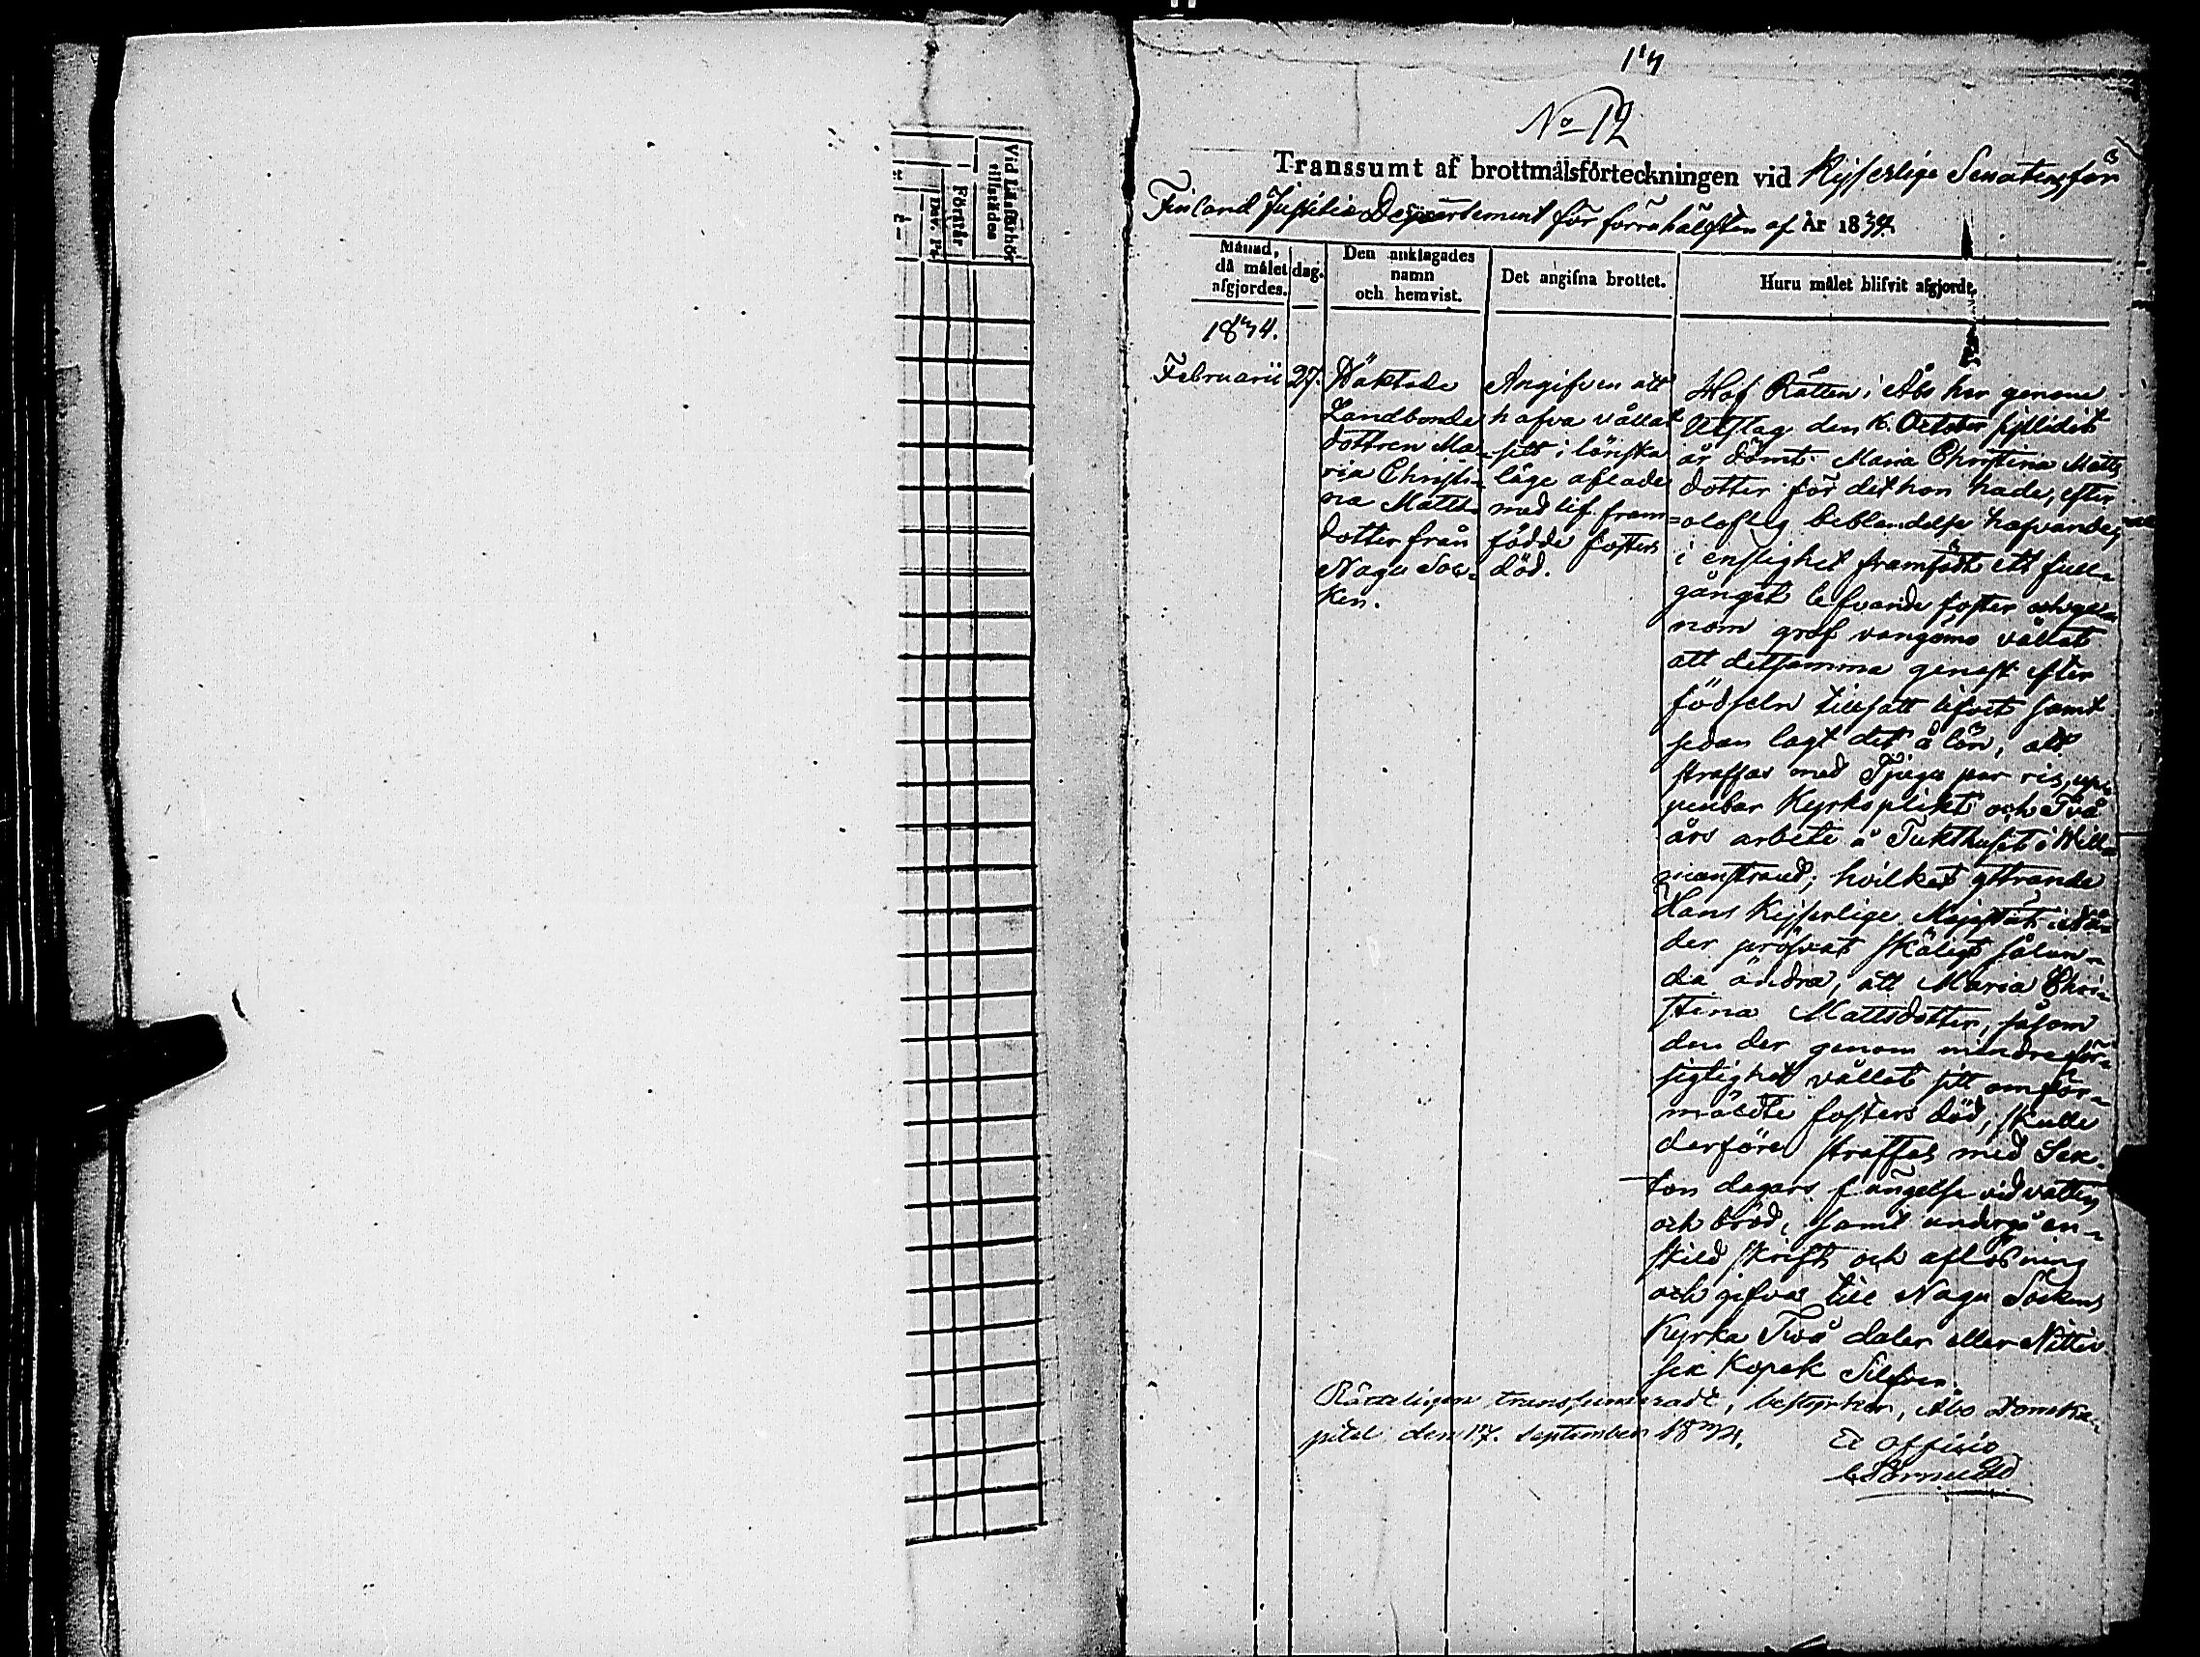 Vid Läsförhör
tillstädes
Förstår
No 12
Transsumt af brottmålsförteckningen vid Kejserlige Senatens för
Finland Justitie Departement för förra hälften af År 1834.
Månad,
då målet
afgjordes.
dag.
Den anklagades
namn
och hemvist.
Det angifna brottet.
Huru målet blifvit afgjordt.
1834.
Februarii
27.
Häktade
Landbonde
dottren Ma-
ria Christi-
na Matts-
dotter från
Nagu Soc-
ken.
Angifven att
hafva vållat
sitt i lönska
läge aflade
med lif fram-
födde fosters
död.
Hof Rätten i Åbo har genom
Utslag den 16. October sistlidit
år dömt Maria Christina Matts
dotter för det hon hade, efter
olaflig beblandelse hafvande,
i enslighet framfödt ett full-
gånget lefvande foster och ge-
nom grof vangömo vållat
att detsamma genast efter
födseln tillsatt lifvet samt
sedan lagt det å lön, att
straffas med Tjugu par ris, up-
penbar Kyrkoplikt och Två
års arbete å Tukthuset i Will-
manstrand; hvilket yttrande
Hans Kejserlige Majestät i Nå-
der pröfvat skäligt sålun-
da ändra, att Maria Chri-
stina Mattsdotter, såsom
den der genom mindre för-
sigtighet vållat sitt omför-
mälte fosters död, skulle
derföre straffas med Sex-
ton dagars fängelse vid vatten
och bröd, samt undergå en-
skild skrift och aflösning
och gifva till Nagu Sockens
Kyrka Två daler eller Nittio
sex Kopek Silfver.
Rätteligen transsumeradt, bestyrker, Åbo Domka-
pitel den 17. September 1834.
Ex officio